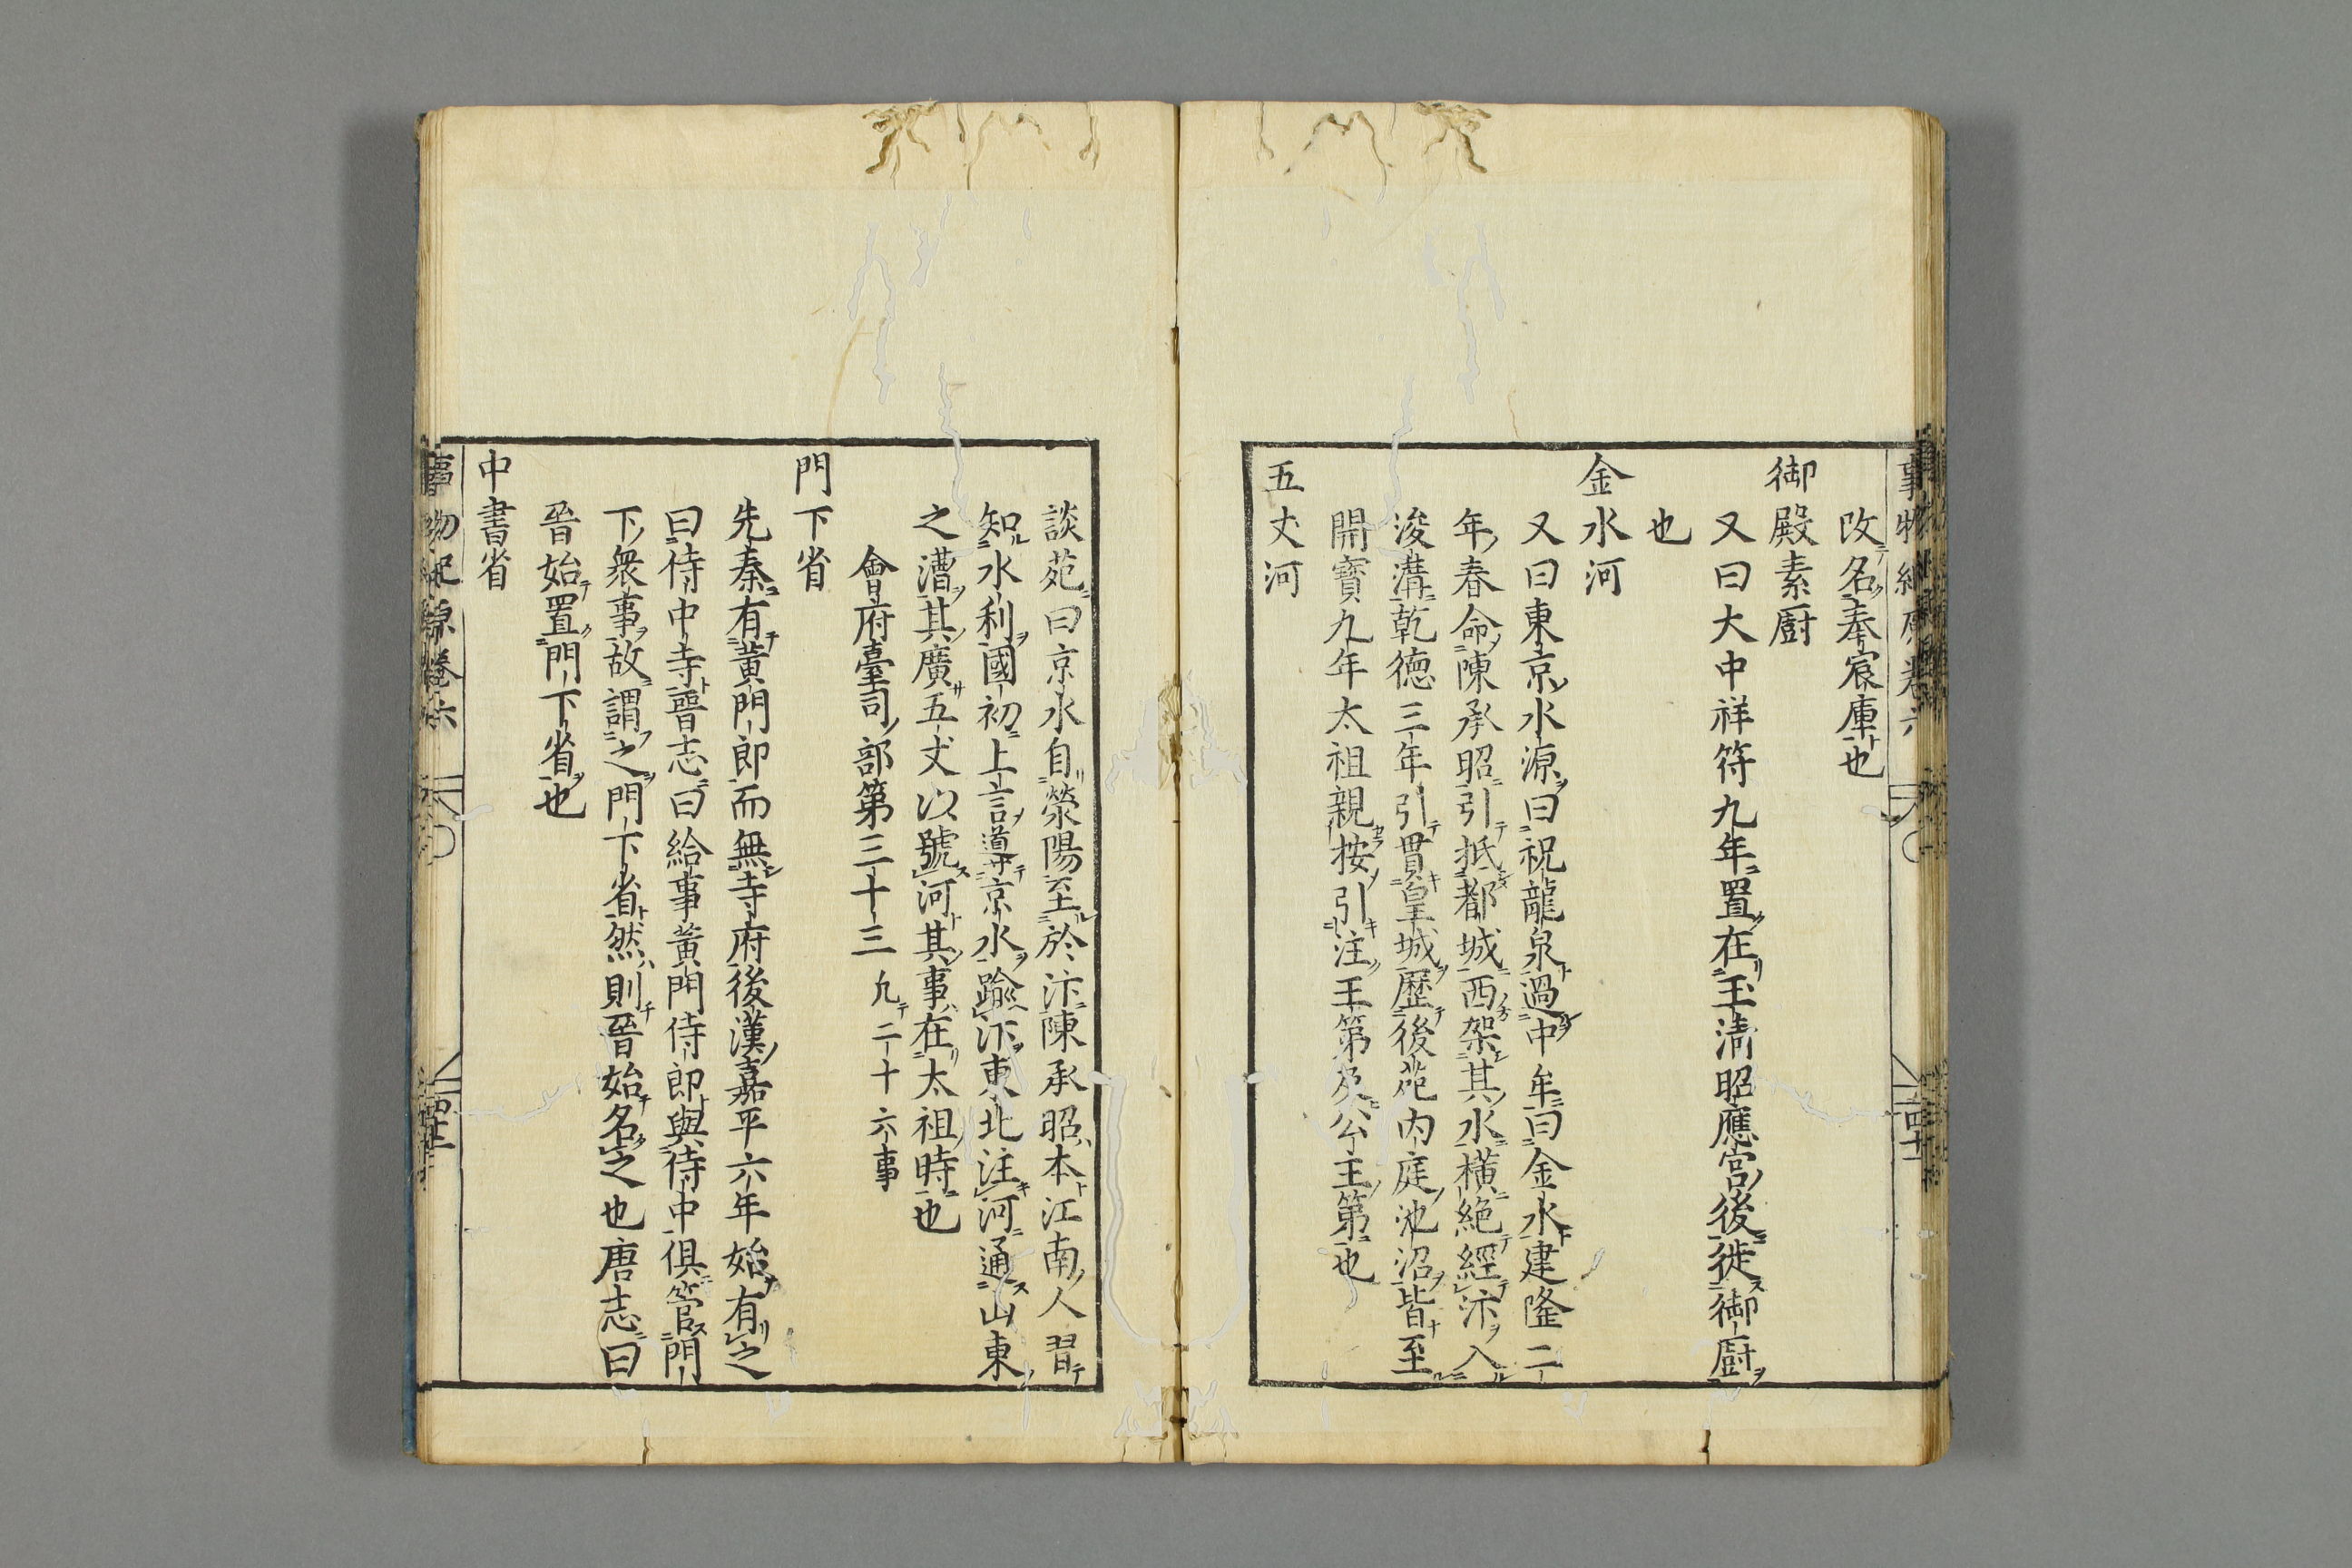 改名奉宸庫也
御殿素厨
又曰大中祥符九年置在玉淸昭應宮後徙御厨
也
金水河
又曰東京水源曰祝龍泉過中牟曰金水建隆二
年春命陳承昭引抵都城西架其水橫絶經汴入
浚溝乾德三年引貫皇城歷後苑内庭池沼皆至
開寶九年太祖親按引注王第及公主第也
五丈河
談苑曰京水自滎陽至於汴陳承昭本江南人習
知水利國初上言導京水踰汴東北注河通山東
之漕其廣五丈以號河其事在太祖時也
會府臺司部第三十三 九二十六事
門下省
先秦有黄門郎而無寺府後漢嘉平六年始有之
曰侍中寺晉志曰給事黄門侍郎與侍中俱管門
下衆事故謂之門下省然則晉始名之也唐志曰
晉始置門下省也
中書省
事物紀原卷六